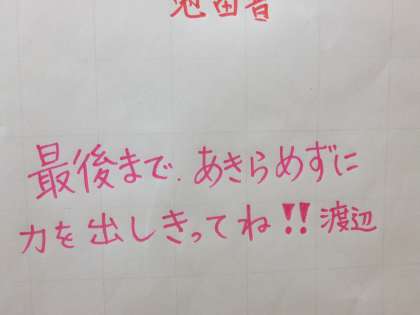 最後まで、あきらめずに
力を出しきってね!! 渡辺